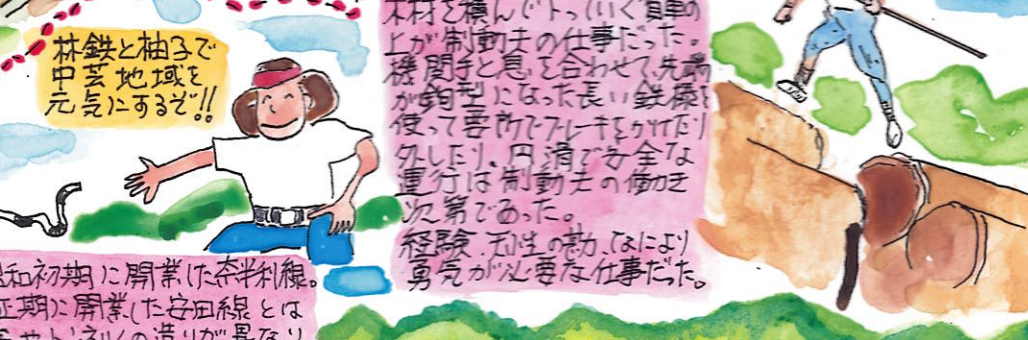 林鉄と柚子で
中芸地域を
元気にするぞ!!
木材を積んで下っていく貨車の
上が制動夫の仕事だった。
機関手と息を合わせて、先端
が鉤型になった長い鉄棒を
使って要所でブレーキをかけたり
外したり。円滑で安全な
運行は制動夫の働き
次第であった。
経験、天性の勘、なにより
勇気が必要な仕事だった。
和初期に開業した奈半利線。
正期に開業した安田線とは
トンネルの造りが異なり